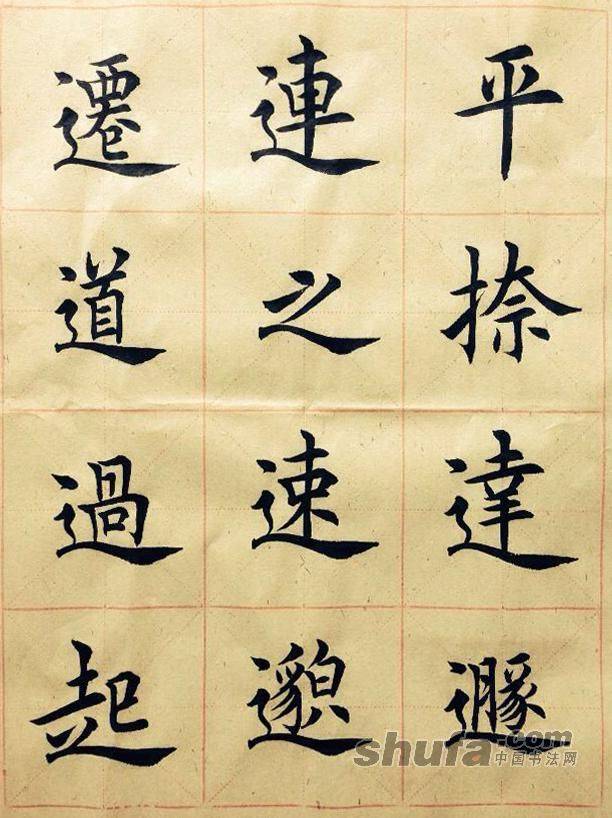 平捺達遯
連之速邈
遷道過起
shufa.com
中国书法网